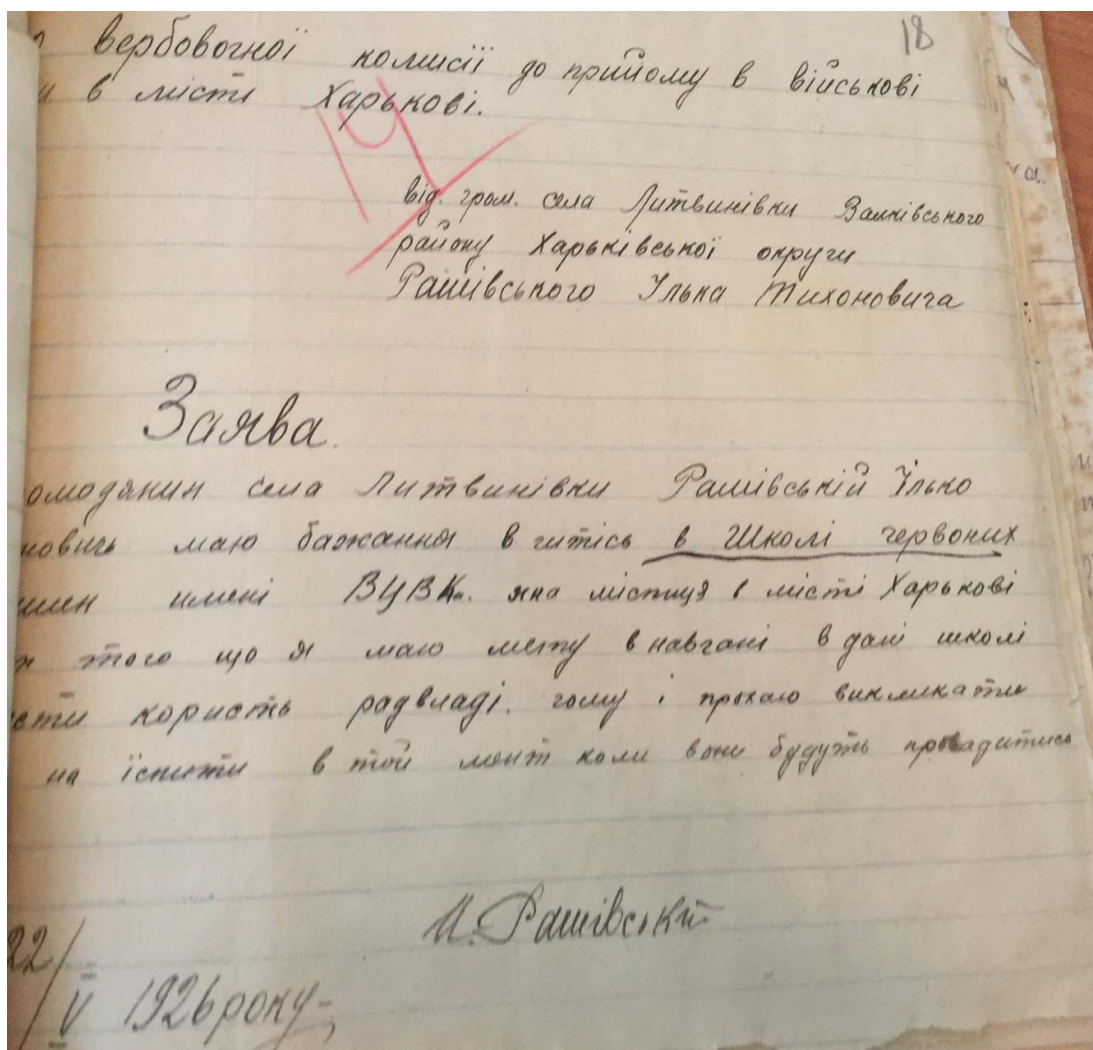 18
вербовочної комисії до прийому в військові
и в місті Харькові.
19
від. гром. села Литвинівки Валківського
району Харьківської округи
Рашівського Ілька Тихоновича
Заява.
омодянин села Литвинівки Рашівській Ілько
нович маю бажання вчитісь в Школі червоних
имені ВЦВК. яка містиця в місті Харькові
того що я маю мету в навчані в даній школі
сти користь радвладі. чому і прохаю викликати
на їспити в той мент коли вони будуть провадитись
И. Рашівський
22/V 1926 року